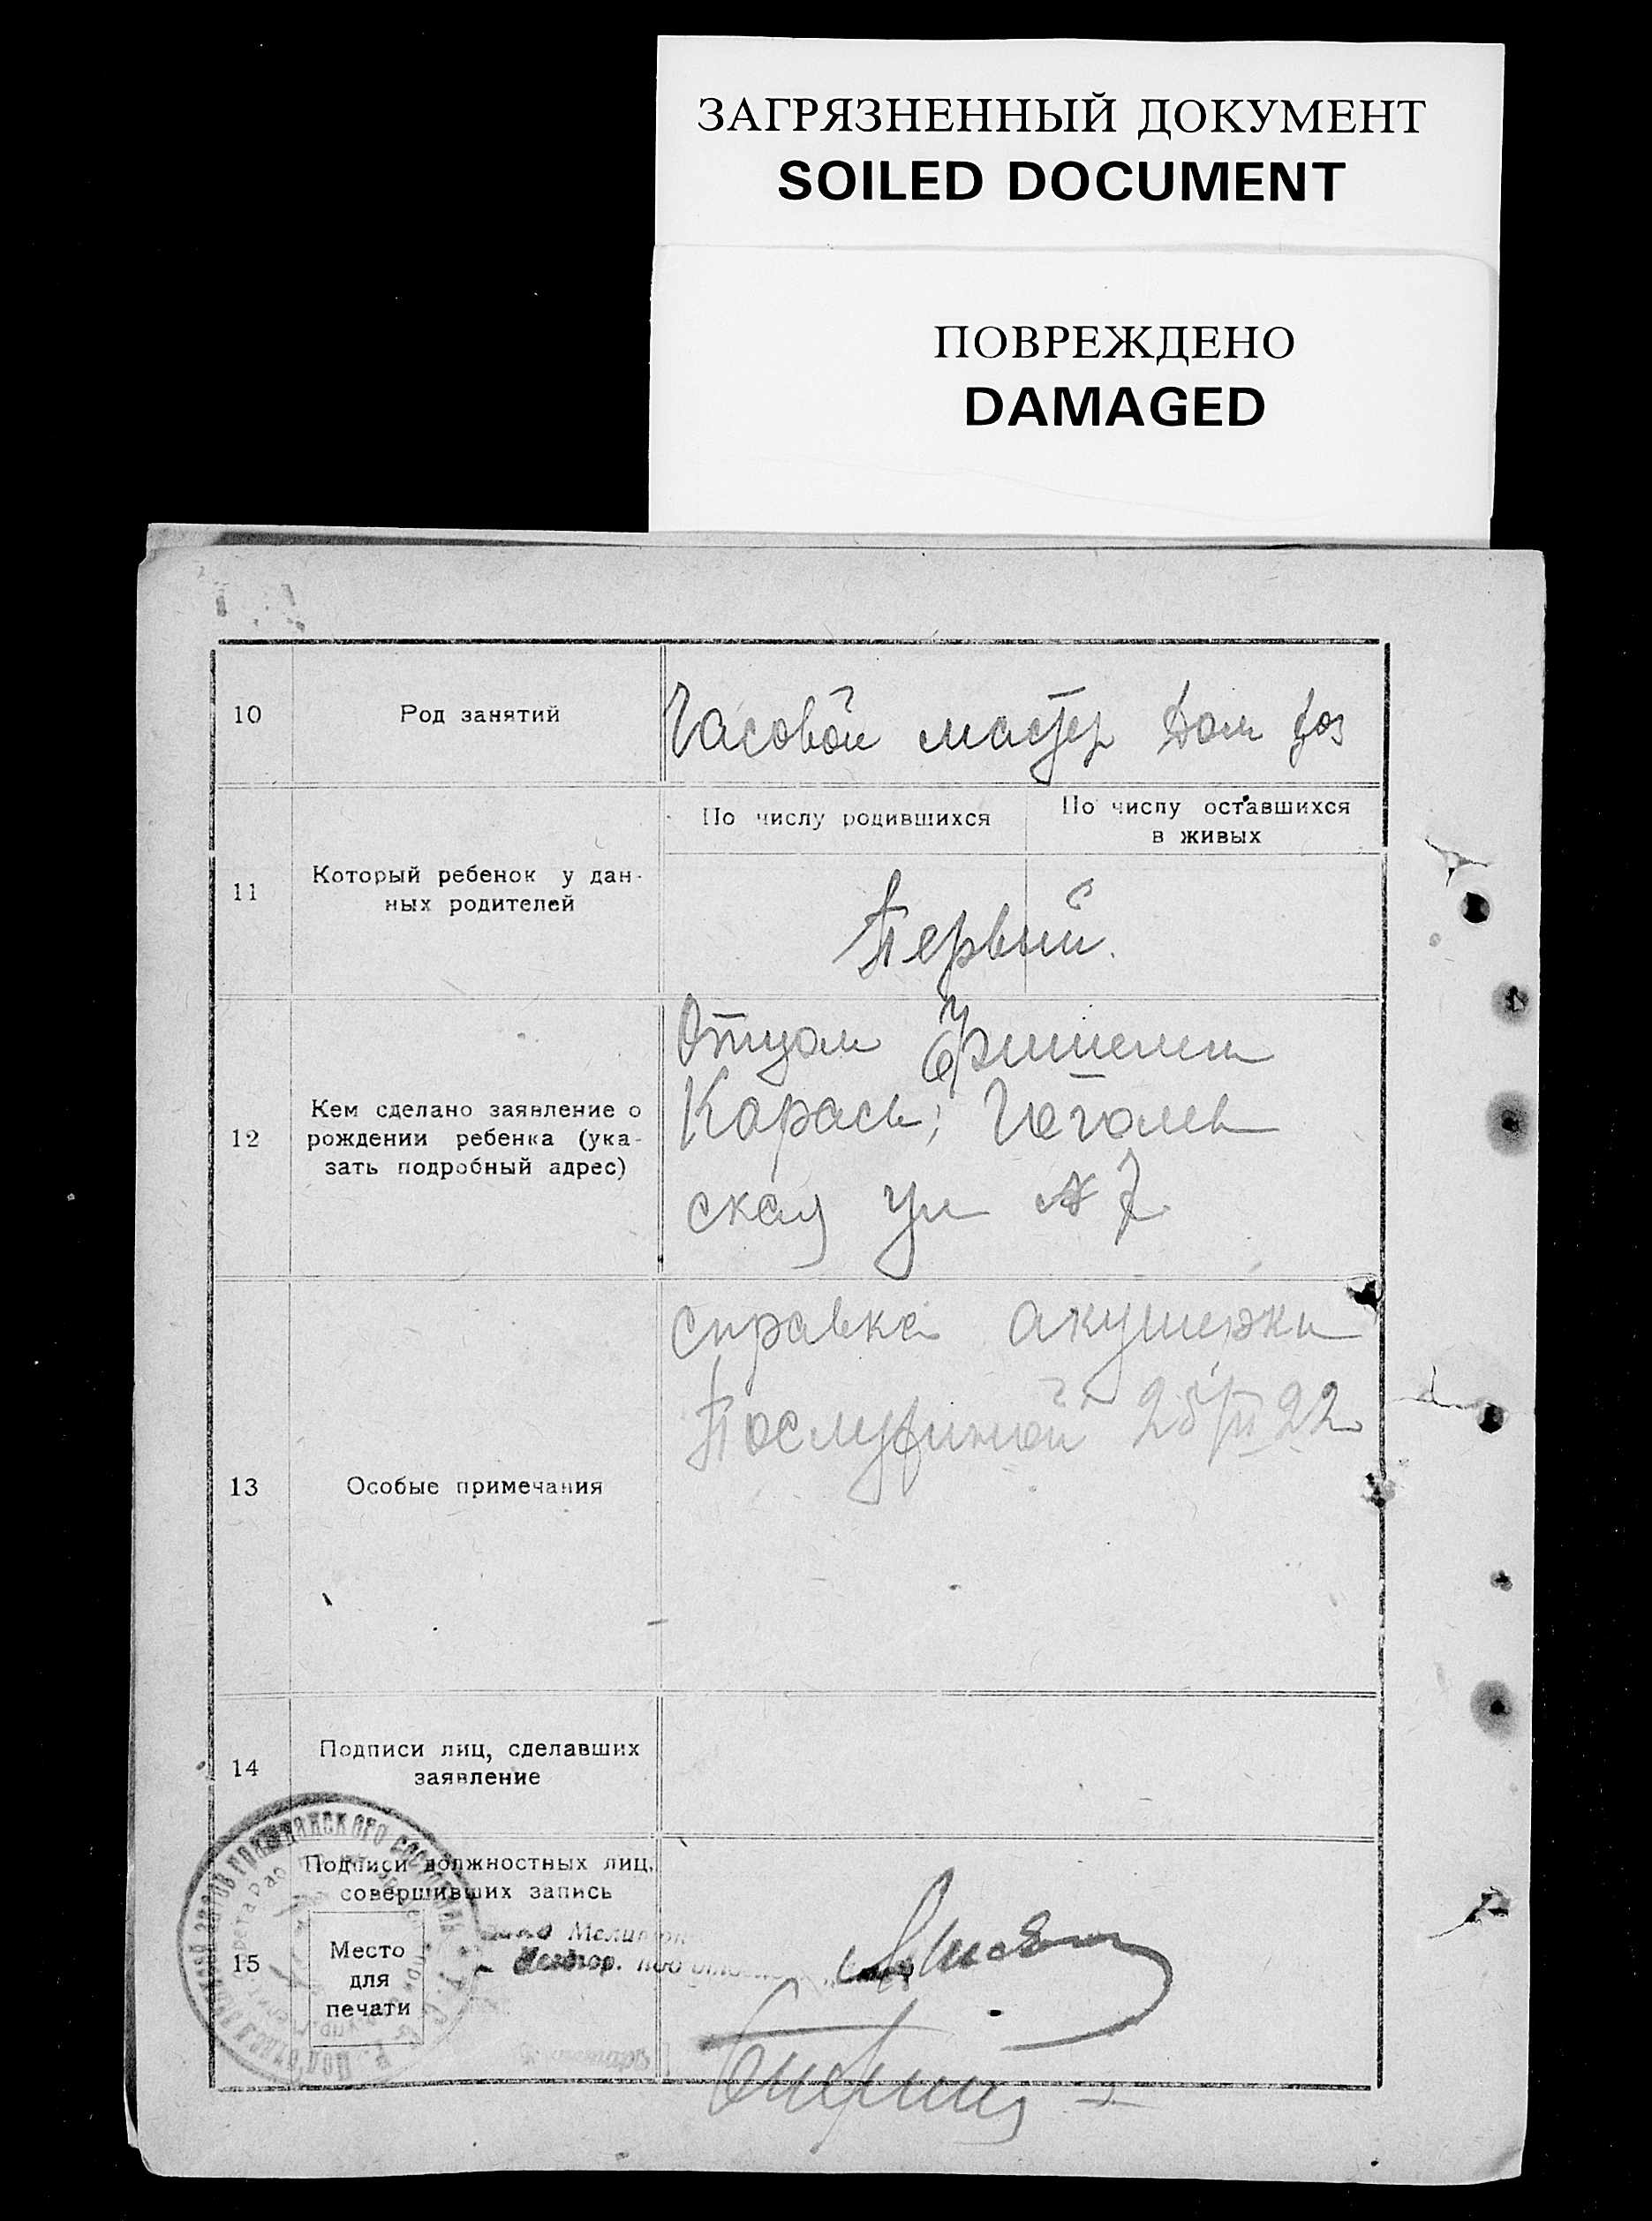 ЗАГРЯЗНЕННЫЙ ДОКУМЕНТ
SOILED DOCUMENT
ПОВРЕЖДЕНО
DAMAGED
10 Род занятий Часовой мастер Дом хоз
По числу родившихся По числу оставшихся
в живых
11 Который ребенок у дан-
ных родителей
Первый.
Отцом Фишелем
12 Кем сделано заявление о
рождении ребенка (ука-
зать подробный адрес)
Карась; Гоголев
ская ул № 7
справка акушерки
25/III 22
13 Особые примечания
14 Подписи лиц, сделавших
заявление
Подписи должностных лиц,
совершивших запись
15 Место
для
печати
гражданского состояния